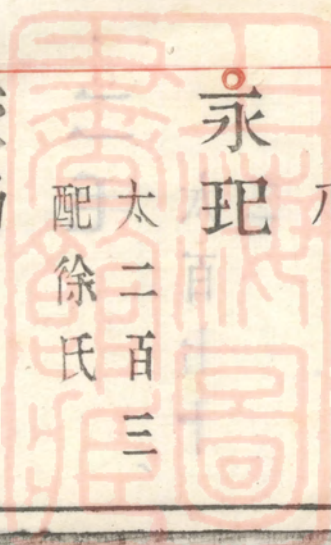 永玘
太二百三
配徐氏